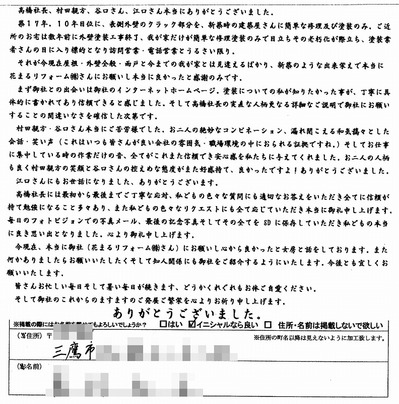 高橋社長、村田親方、谷口さん、江口さん本当にありがとうございました。
第17年、10年目位に、表側外壁のクラック部分を、新築時の建築屋さんに簡単な修理及び塗装のみ、ご近
所のお宅は数年前に外壁塗装工事終了、我が家だけが簡単な修理塗装のみで目立ちその老朽化が際立ち、塗装業
者さんの目に入り標的となり訪問営業・電話営業とうるさい限り。
それが今現在屋根・外壁全般・雨戸と今までの我が家とは見違えるばかり、新築のような出来栄えで本当に
花まるリフォーム㈱さんにお願いし本当に良かったと感謝のみです。
まず御社との出会いは御社のインターネットホームページ。塗装についての私が知りたかった事が、丁寧に具
体的に書かれてあり信頼できると感じました。そして高橋社長の実直な人柄更なる詳細なご説明で御社にお願い
することの間違いなさを確信した次第です。
村田親方・谷口さん本当にご苦労様でした。お二人の絶妙なコンビネーション、漏れ聞こえる和気藹々とした
会話・笑い声（これはいつも皆さんが良い会社の雰囲気・職場環境の中におられる証拠ですね）そしてお仕事
に集中している時の作業だけの音、全てがこれまた信頼でき安心感を私たちに与えてくれました。お二人の人柄
も良く村田親方の笑顔と谷口さんの控えめな態度がまた好感持て、良かったですよ！ありがとうございました。
江口さんにもお世話になりました、ありがとうございます。
高橋社長には最初から最後までご丁寧な応対、私どもの色々な質問にも適切なお答えをいただき全てに信頼が
持て勉強になること多々あり、また私どもの色々なリクエストにも全て応じていただき本当に御礼申し上げます。
毎日のフォトビジョンでの写真メール、最後の記念写真そしてその全てをCDに保存していただき私どもの本当
に良き思い出となりました。心より御礼申し上げます。
今現在、本当に御社（花まるリフォーム㈱さん）にお願いし心から良かったと女房と話をしております。また
何かありましたらお願いいたしたくそして知人関係にも御社をご紹介するようにいたします。今後とも宜しくお
願いいたします。
皆さんお忙しい毎日そして暑い毎日が続きます、どうかくれぐれもお体ご自愛ください。
そして御社のこれからのますますのご発展ご繁栄を心よりお祈り申します。
ありがとうございました。
※掲載の際にはお名前を載せてもよろしいでしょうか？ □はい ☑イニシャルなら良い □ 住所・名前は掲載しないで欲しい
ご住所） 〒
※住所の町名以降は見えないように加工致します。
三鷹市
お名前）